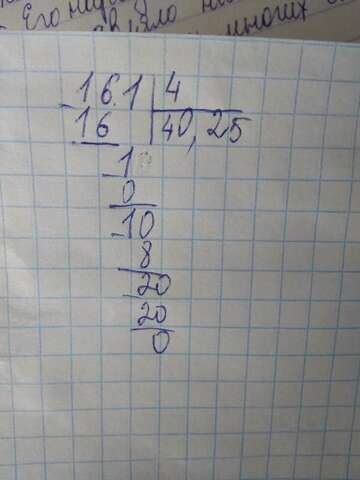 Его
многих
161 4
16 40,25
1
0
10
8
20
20
0